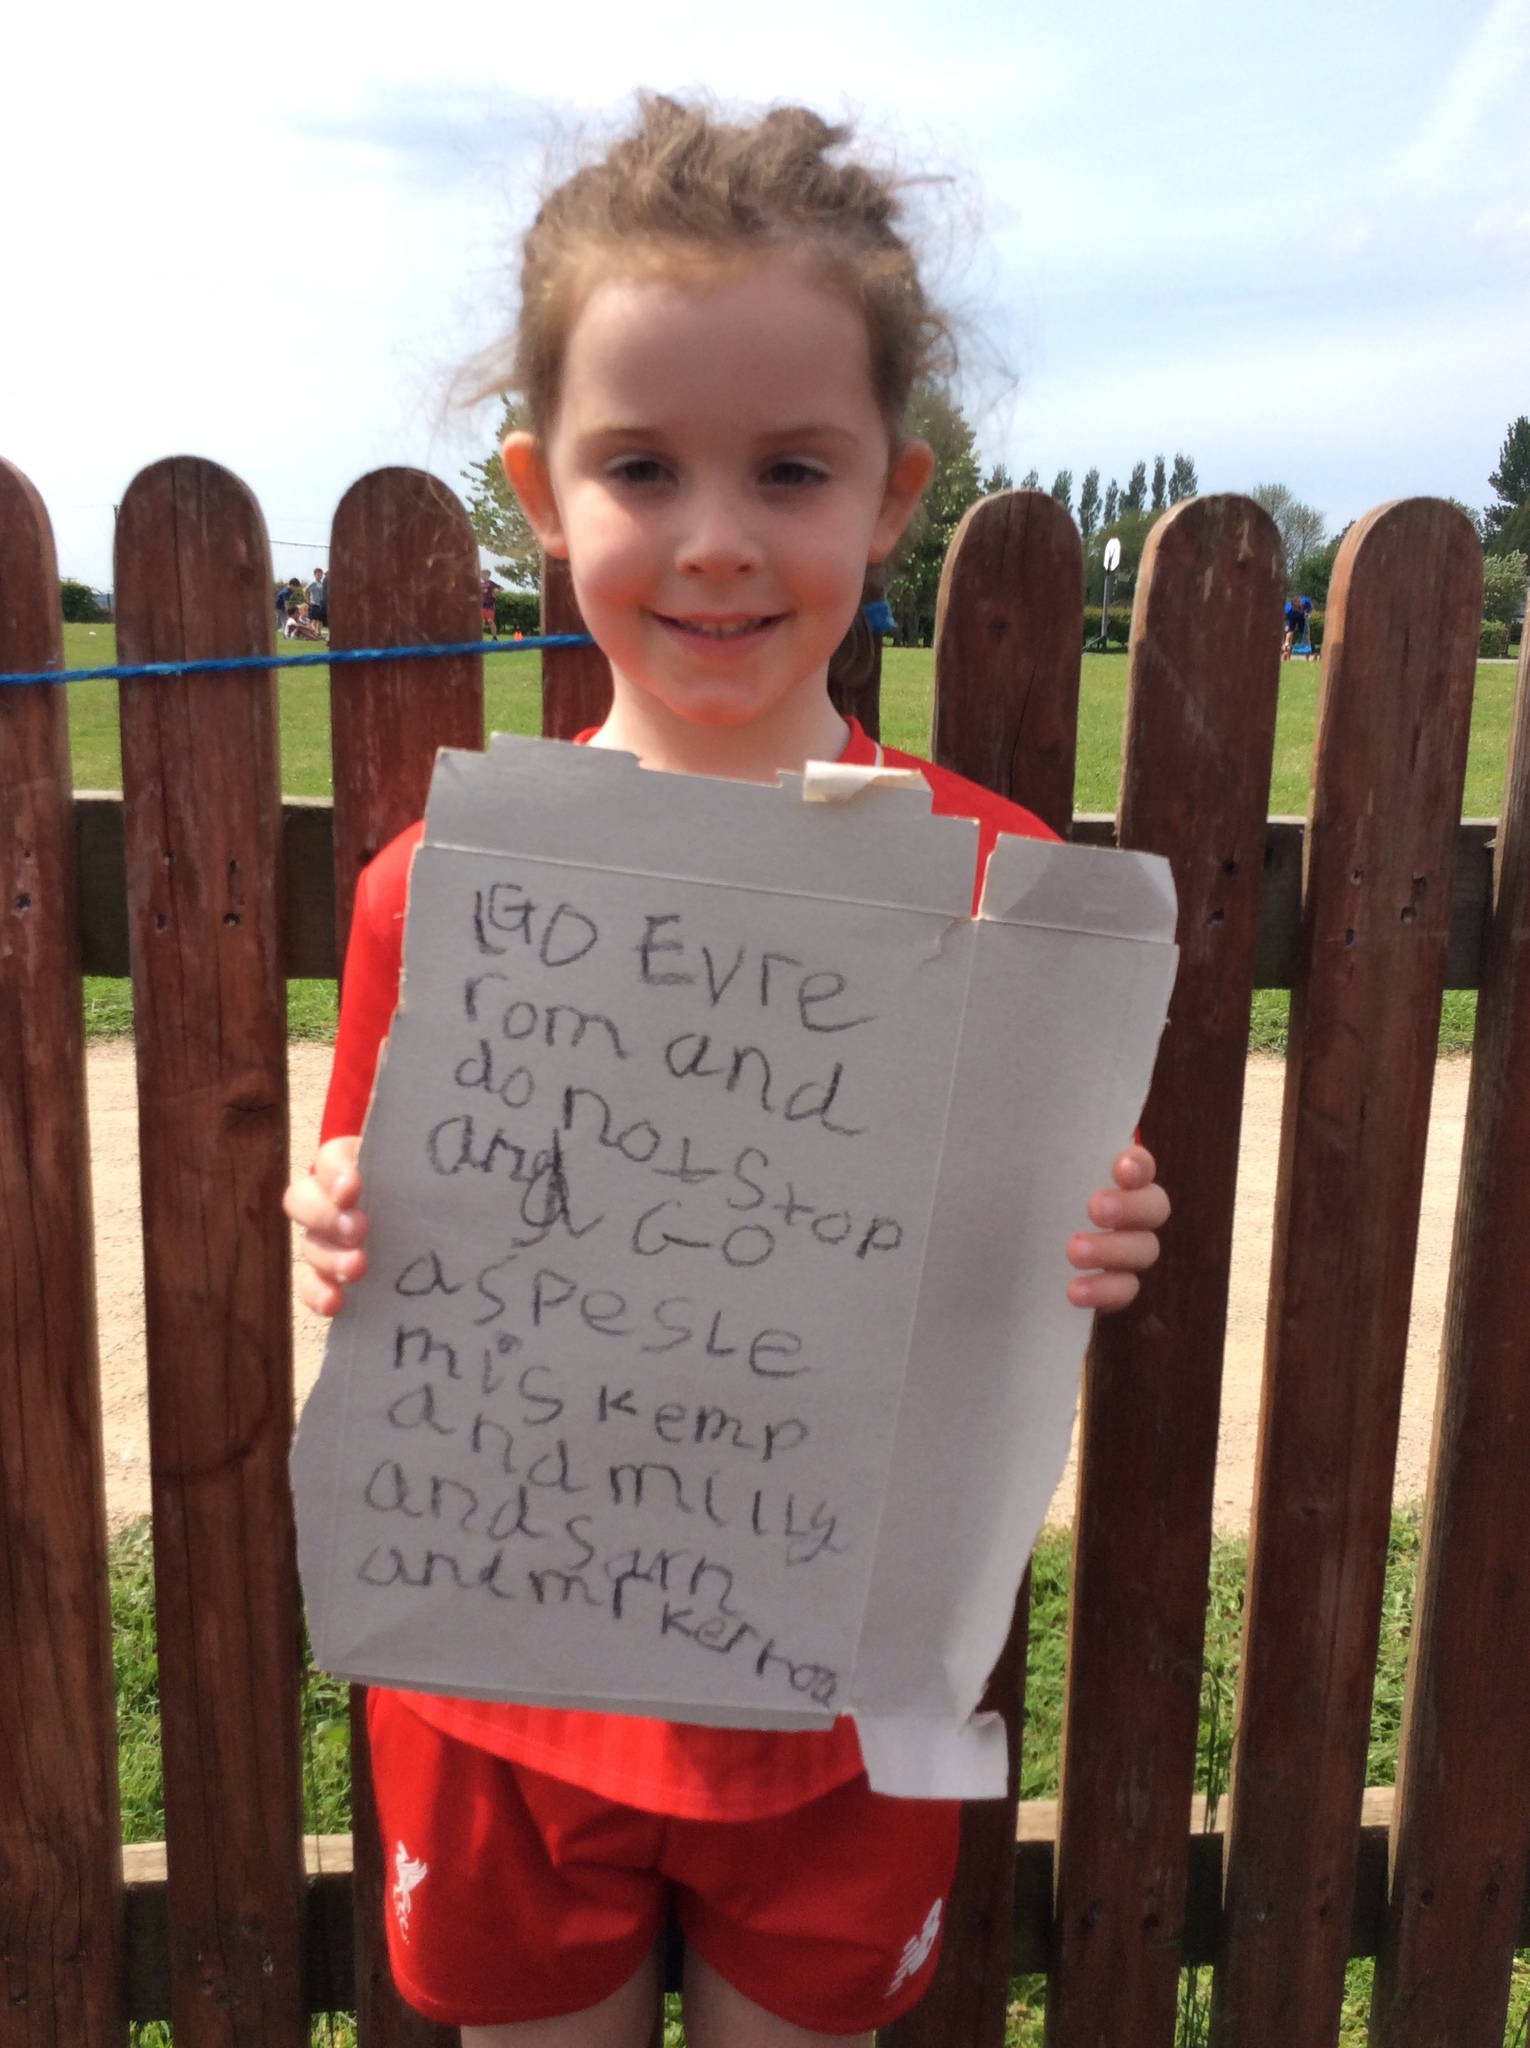 GO Evre
rom and
do not Stop
and GO
aspesle
mis kemp
and milly
and sarn
and mr